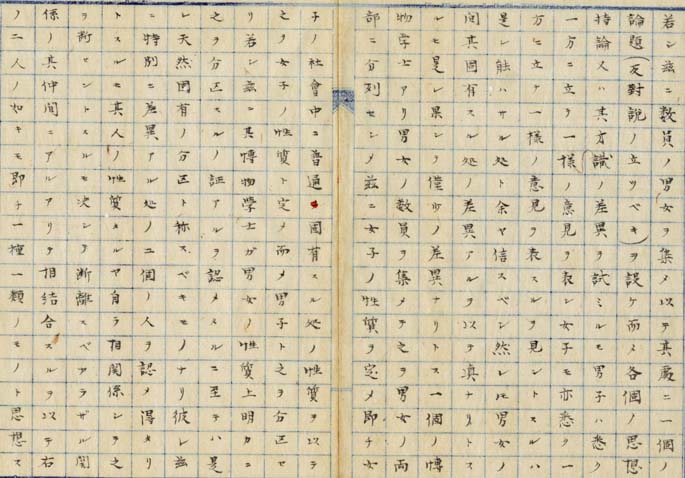 若シ茲ニ数員ノ男女ヲ集メ以テ其處ニ一個ノ
論題(反對說ノ立ツベキ)ヲ設ケ而メ各個ノ思想
持論又ハ其方(識)ノ差異ヲ試ミルモ男子ハ悉ク
一方ニ立テ一様ノ意見ヲ表シ女子モ亦悉ク一
方ニ立ケ一様ノ意見ヲ表スルヲ見ントスルハ
是レ能ハサル処ト余ヤ信スベシ然レ𪜈男女ノ
間其固有スル処ノ差異アルヲ以テ眞ナリトス
ルモ是レ果シテ僅少ノ差異ナリトス一個ノ博
物学士アリ男女ノ数員ヲ集メテ之ヲ男女ノ両
部ニ分列セシメ茲ニ女子ノ性質ヲ定メ即チ女
子ノ社會中ニ普通固有スル処ノ性質ヲ以テ
之ヲ女子ノ性質ト定メ而メ男子ト之ヲ分区セ
リ若シ茲ニ其博物學士ガ男女ノ性質上明カニ
之ヲ分区スルノ証アルヲ認メスルニ至テハ是
レ天然固有ノ分区ト称スベキモノナリ彼レ茲
ニ特別ニ差異アル処ノ二個ノ人ヲ認メ得タリ
トスルモ其人ノ性質タルヤ自ラ相関係シ之
ヲ断セントスルモ决シテ断離スベカラザル関
係ノ其仲間ニアルアリテ相結合スルヲ以テ右
ノ二人ノ如キモ即チ一種一類ノモノト思想ス